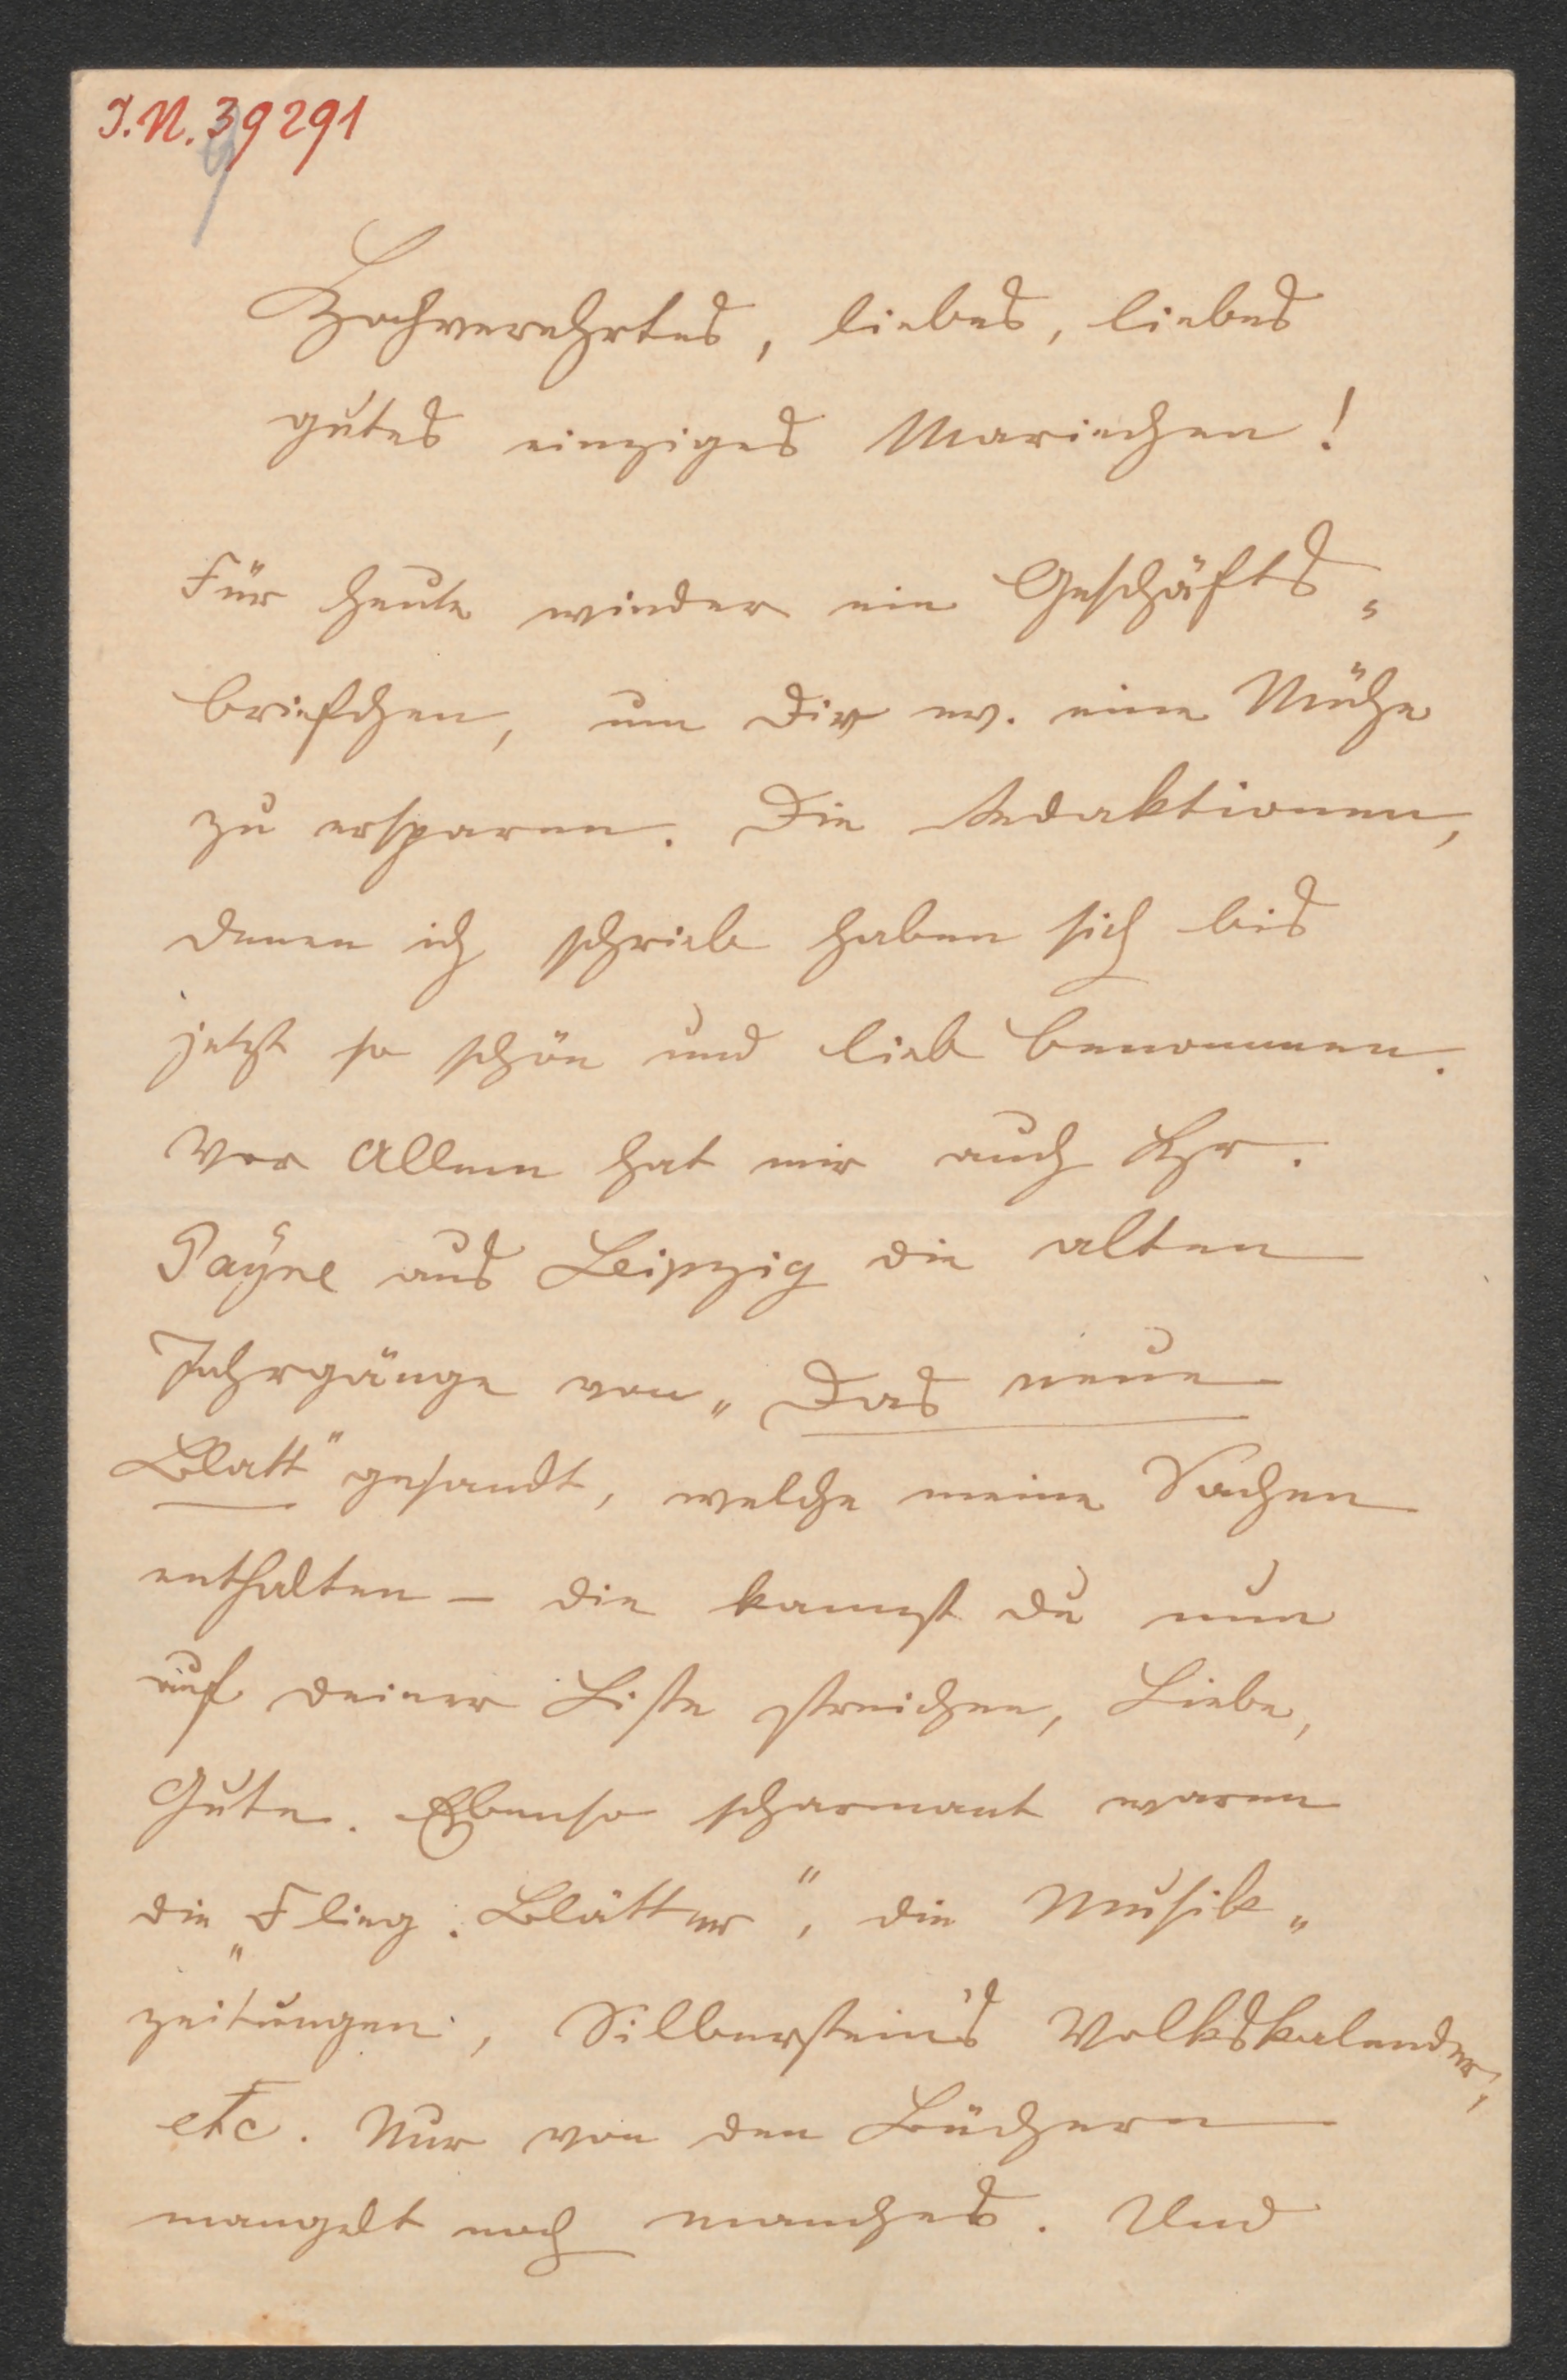 I.N. 39291
Hochverehrtes, liebes, liebes
gutes einziges Mariechen!
Für heute wieder ein Geschäfts„
briefchen, um Dir ev. eine Mühe
zu ersparen. Die Redaktionen,
denen ich schrieb haben sich bis
jetzt so schön und lieb benommen.
Vor Allem hat mir auch Hr.
Payne aus Leipzig die alten
Jahrgänge von „Das neue
Blatt" gesandt, welche meine Sachen
enthalten – die kannst du nun
auf deiner Liste streichen, Liebe,
Gute. Ebenso scharmant waren
die „Flieg. Blätter", die Musik„
zeitungen, Silberstein's Volkskalender,
etc. Nur von den Büchern
mangelt noch manches. Und